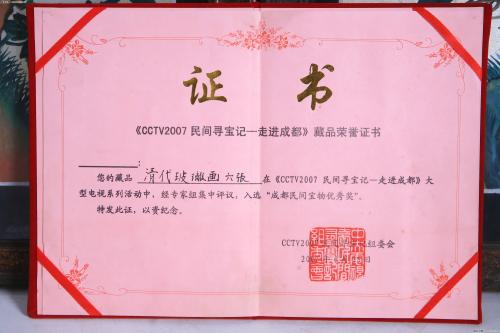 证 书
《CCTV2007 民间寻宝记—走进成都》藏品荣誉证书
:
您的藏品 清代玻璃画六张 在《CCTV2007 民间寻宝记—走进成都》大
型电视系列活动中,经专家组集中评议,入选“成都民间宝物优秀奖”。
特发此证,以资纪念。
CCTV200 组委会
200 日